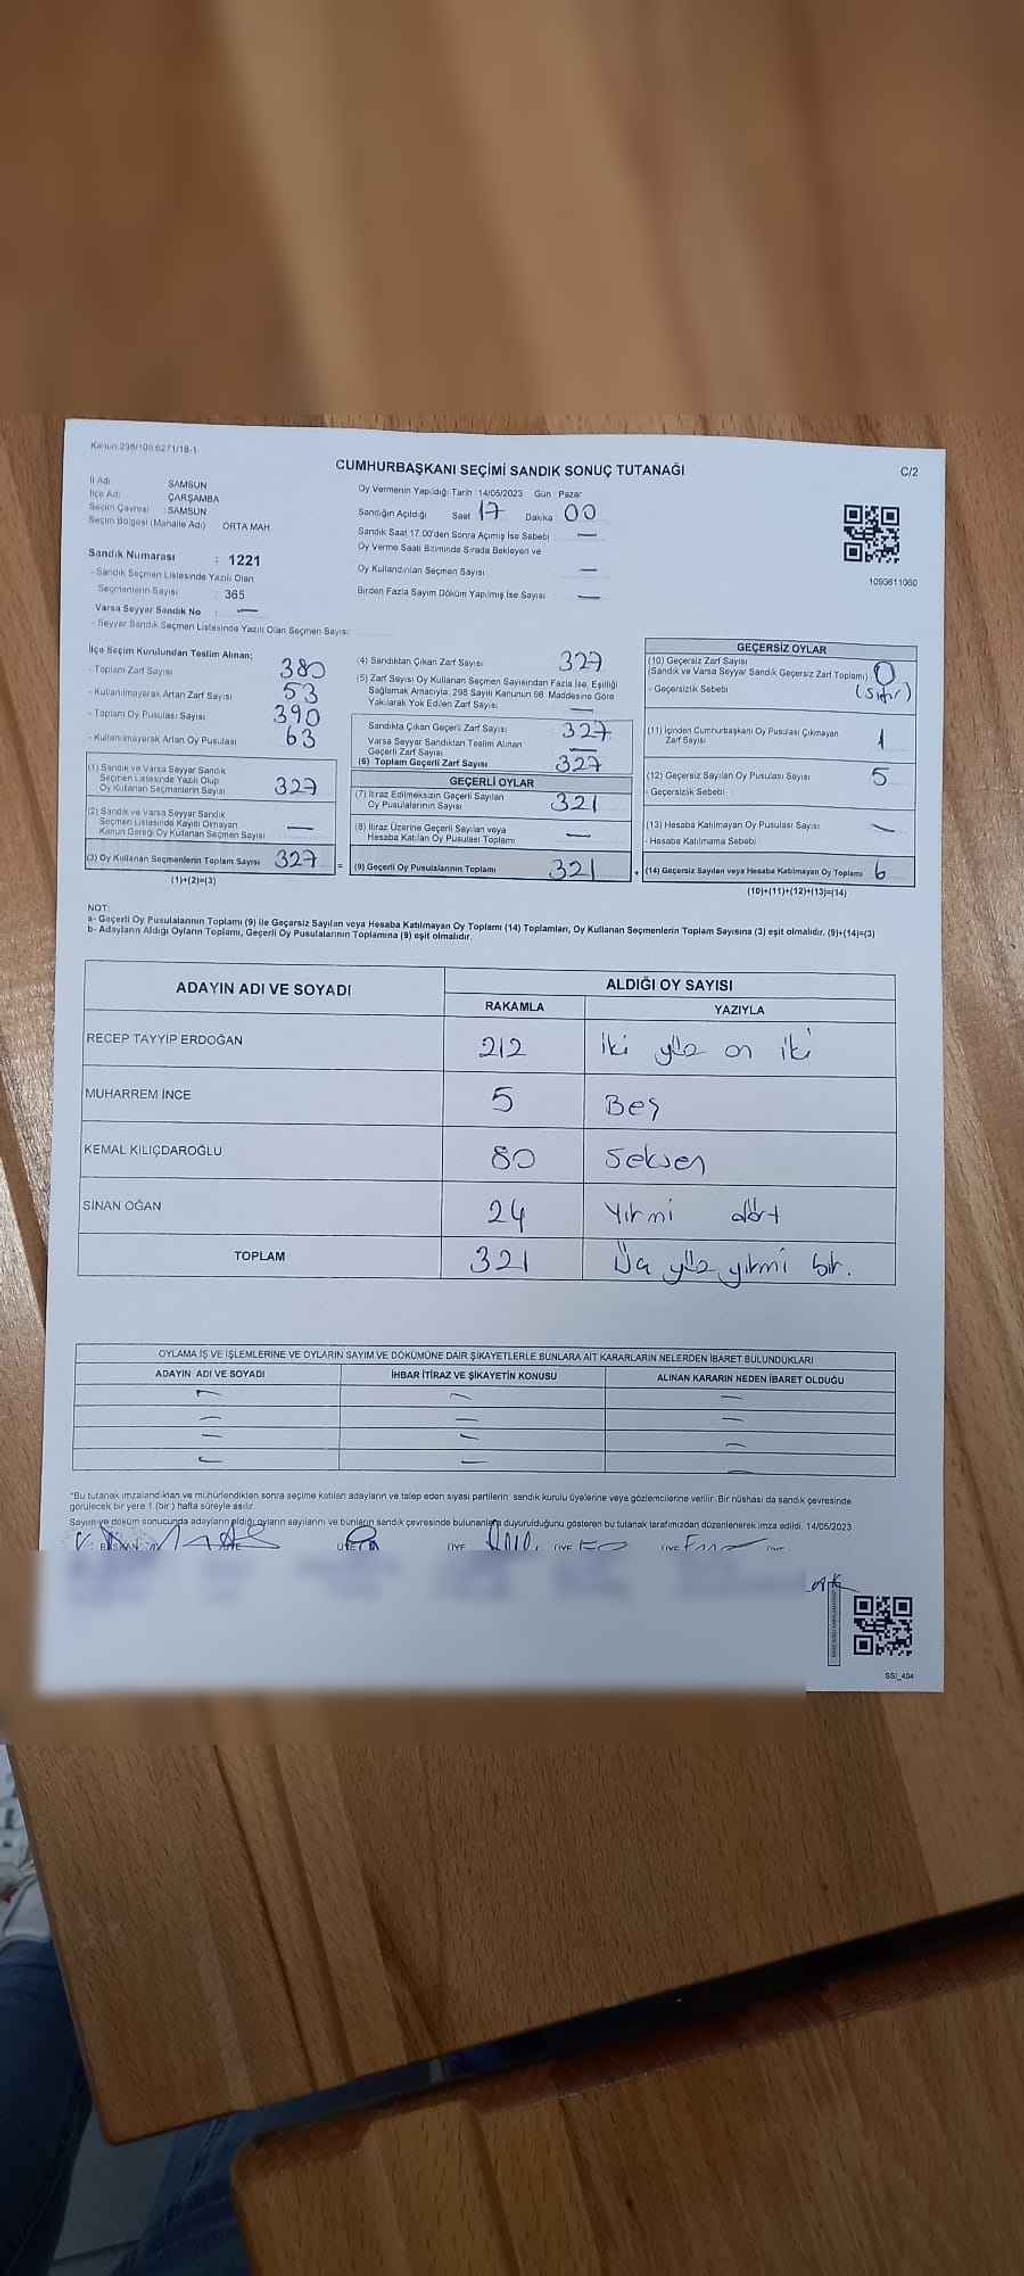 Kanun:298/105,6271/18-1
CUMHURBAŞKANI SEÇİMİ SANDIK SONUÇ TUTANAĞI
C/2
İl Adı : SAMSUN
İlçe Adı : ÇARŞAMBA
Seçim Çevresi : SAMSUN
Seçim Bölgesi (Mahalle Adı) ORTA MAH.
Sandık Numarası : 1221
- Sandık Seçmen Listesinde Yazılı Olan
Seçmenlerin Sayısı : 365
Varsa Seyyar Sandık No : —
- Seyyar Sandık Seçmen Listesinde Yazılı Olan Seçmen Sayısı:
Oy Vermenin Yapıldığı Tarih :14/05/2023 Gün : Pazar
Sandığın Açıldığı Saat 17 Dakika 00
Sandık Saat 17.00'den Sonra Açımış İse Sebebi : —
Oy Verme Saati Bitiminde Sırada Bekleyen ve
Oy Kullandırılan Seçmen Sayısı : —
Birden Fazla Sayım Döküm Yapılmış İse Sayısı : —
1093611060
İlçe Seçim Kurulundan Teslim Alınan;
- Toplam Zarf Sayısı 380
- Kullanılmayarak Artan Zarf Sayısı 53
- Toplam Oy Pusulası Sayısı 390
- Kullanılmayarak Artan Oy Pusulası 63
(1) Sandık ve Varsa Seyyar Sandık
Seçmen Listesinde Yazılı Olup
Oy Kullanan Seçmenlerin Sayısı 327
(2) Sandık ve Varsa Seyyar Sandık
Seçmen Listesinde Kayıtlı Olmayan
Kanun Gereği Oy Kullanan Seçmen Sayısı —
(3) Oy Kullanan Seçmenlerin Toplam Sayısı 327 =
(1)+(2)=(3)
(4) Sandıktan Çıkan Zarf Sayısı 327
(5) Zarf Sayısı Oy Kullanan Seçmen Sayısından Fazla İse, Eşitliği
Sağlamak Amacıyla, 298 Sayılı Kanunun 98. Maddesine Göre
Yakılarak Yok Edilen Zarf Sayısı —
Sandıkta Çıkan Geçerli Zarf Sayısı 327
Varsa Seyyar Sandıktan Teslim Alınan
Geçerli Zarf Sayısı —
(6) Toplam Geçerli Zarf Sayısı 327
GEÇERLİ OYLAR
(7) İtiraz Edilmeksizin Geçerli Sayılan
Oy Pusulalarının Sayısı 321
(8) İtiraz Üzerine Geçerli Sayılan veya
Hesaba Katılan Oy Pusulası Toplamı —
(9) Geçerli Oy Pusulalarının Toplamı 321 +
GEÇERSİZ OYLAR
(10) Geçersiz Zarf Sayısı
(Sandık ve Varsa Seyyar Sandık Geçersiz Zarf Toplamı) 0
- Geçersizlik Sebebi (Sıfır)
(11) İçinden Cumhurbaşkanı Oy Pusulası Çıkmayan
Zarf Sayısı 1
(12) Geçersiz Sayılan Oy Pusulası Sayısı 5
- Geçersizlik Sebebi
(13) Hesaba Katılmayan Oy Pusulası Sayısı —
- Hesaba Katılmama Sebebi
(14) Geçersiz Sayılan veya Hesaba Katılmayan Oy Toplamı 6
(10)+(11)+(12)+(13)=(14)
NOT:
a- Geçerli Oy Pusulalarının Toplamı (9) ile Geçersiz Sayılan veya Hesaba Katılmayan Oy Toplamı (14) Toplamları, Oy Kullanan Seçmenlerin Toplam Sayısına (3) eşit olmalıdır. (9)+(14)=(3)
b- Adayların Aldığı Oyların Toplamı, Geçerli Oy Pusulalarının Toplamına (9) eşit olmalıdır.
ADAYIN ADI VE SOYADI ALDIĞI OY SAYISI
RAKAMLA YAZIYLA
RECEP TAYYİP ERDOĞAN 212 iki yüz on iki
MUHARREM İNCE 5 Beş
KEMAL KILIÇDAROĞLU 80 Seksen
SİNAN OĞAN 24 Yirmi dört
TOPLAM 321 Üç yüz yirmi bir.
OYLAMA İŞ VE İŞLEMLERİNE VE OYLARIN SAYIM VE DÖKÜMÜNE DAİR ŞİKAYETLERLE BUNLARA AİT KARARLARIN NELERDEN İBARET BULUNDUKLARI
ADAYIN ADI VE SOYADI İHBAR İTİRAZ VE ŞİKAYETİN KONUSU ALINAN KARARIN NEDEN İBARET OLDUĞU
*Bu tutanak imzalandıktan ve mühürlendikten sonra seçime katılan adayların ve talep eden siyasi partilerin sandık kurulu üyelerine veya gözlemcilerine verilir. Bir nüshası da sandık çevresinde
görülecek bir yere 1 (bir) hafta süreyle asılır.
Sayım ve döküm sonucunda adayların aldığı oyların sayılarını ve bunların sandık çevresinde bulunanlara duyurulduğunu gösteren bu tutanak tarafımızdan düzenlenerek imza edildi. 14/05/2023
BAŞKAN ÜYE ÜYE ÜYE ÜYE ÜYE
SSİ_454